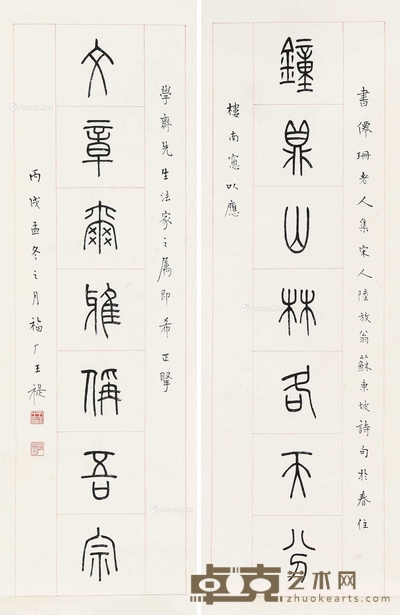 書老人集宋人陸放翁蘇東坡詩句於春住
鐘鼎山林各天分
樓南窗以應
學齋先生法家之属即希正
文章爾雅偁吾宗
丙戌孟冬之月福厂王禔
卓克艺术网
http://www.zhuokearts.com/